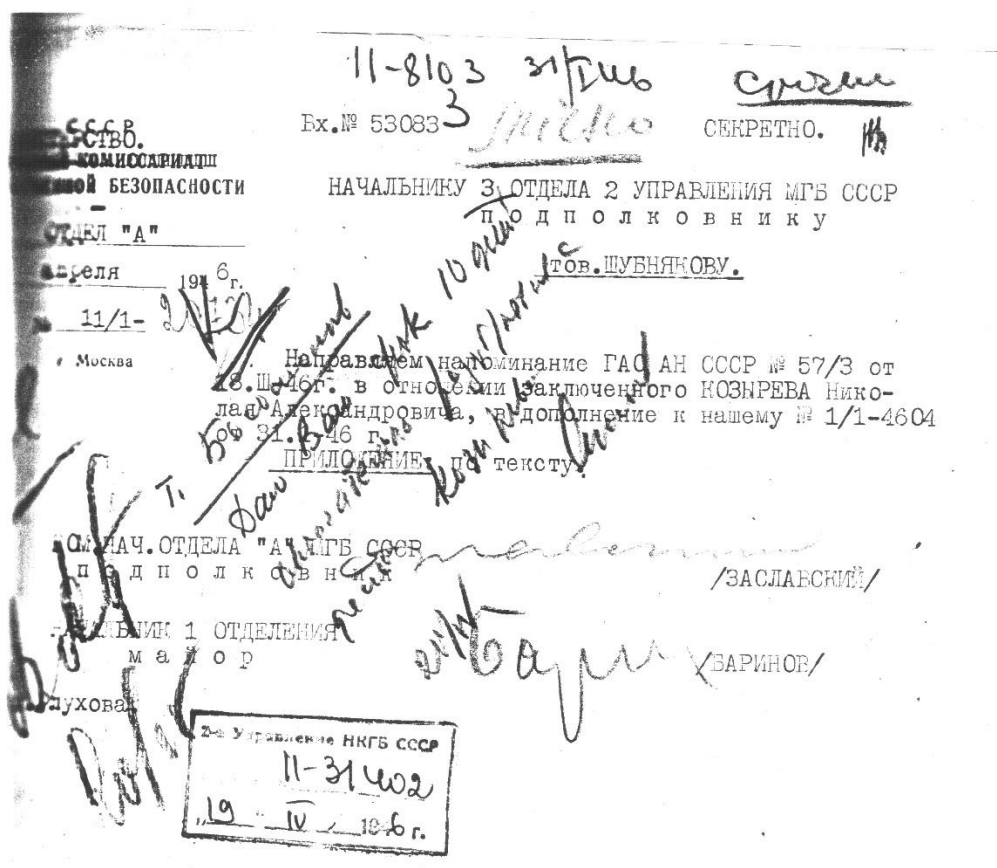 11-8103 31/
срочно
Вх.№ 53083
3
СЕКРЕТНО.
СССР
СТВО.
КОМИССАРИАТ
БЕЗОПАСНОСТИ
НАЧАЛЬНИКУ 3 ОТДЕЛА 2 УПРАВЛЕНИЯ МГБ СССР
п о д п о л к о в н и к у
тов.ШУБНЯКОВУ.
ОТДЕЛ "А"
апреля 1946г.
№ 11/1-
г Москва
Направляем напоминание ГАО АН СССР № 57/3 от
18.Ш-46г. в отношении заключенного КОЗЫРЕВА Нико-
лая Александровича, в дополнение к нашему № 1/1-4604
от 31. 46 г.
ПРИЛОЖЕНИЕ: по тексту.
Т.
Даю Вам срок 10 дней
ПОМ.НАЧ.ОТДЕЛА "А" МГБ СССР
п о д п о л к о в н и к
/ЗАСЛАВСКИЙ/
НАЧАЛЬНИК 1 ОТДЕЛЕНИЯ
м а й о р
/БАРИНОВ/
Глухова
2-е Управление НКГБ СССР
11-31402
"19" IV 1946 г.